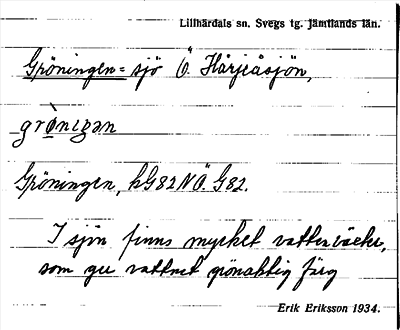 Lillhärdals sn. Svegs tg. Jämtlands län.
Gröningen = sjö Ö. Härjeåsjön,
grònigan
Gröningen, hG82NÖ. G82.
I sjön finns mycket vattenväxter,
som ger vattnet grönaktig färg
Erik Eriksson 1934.